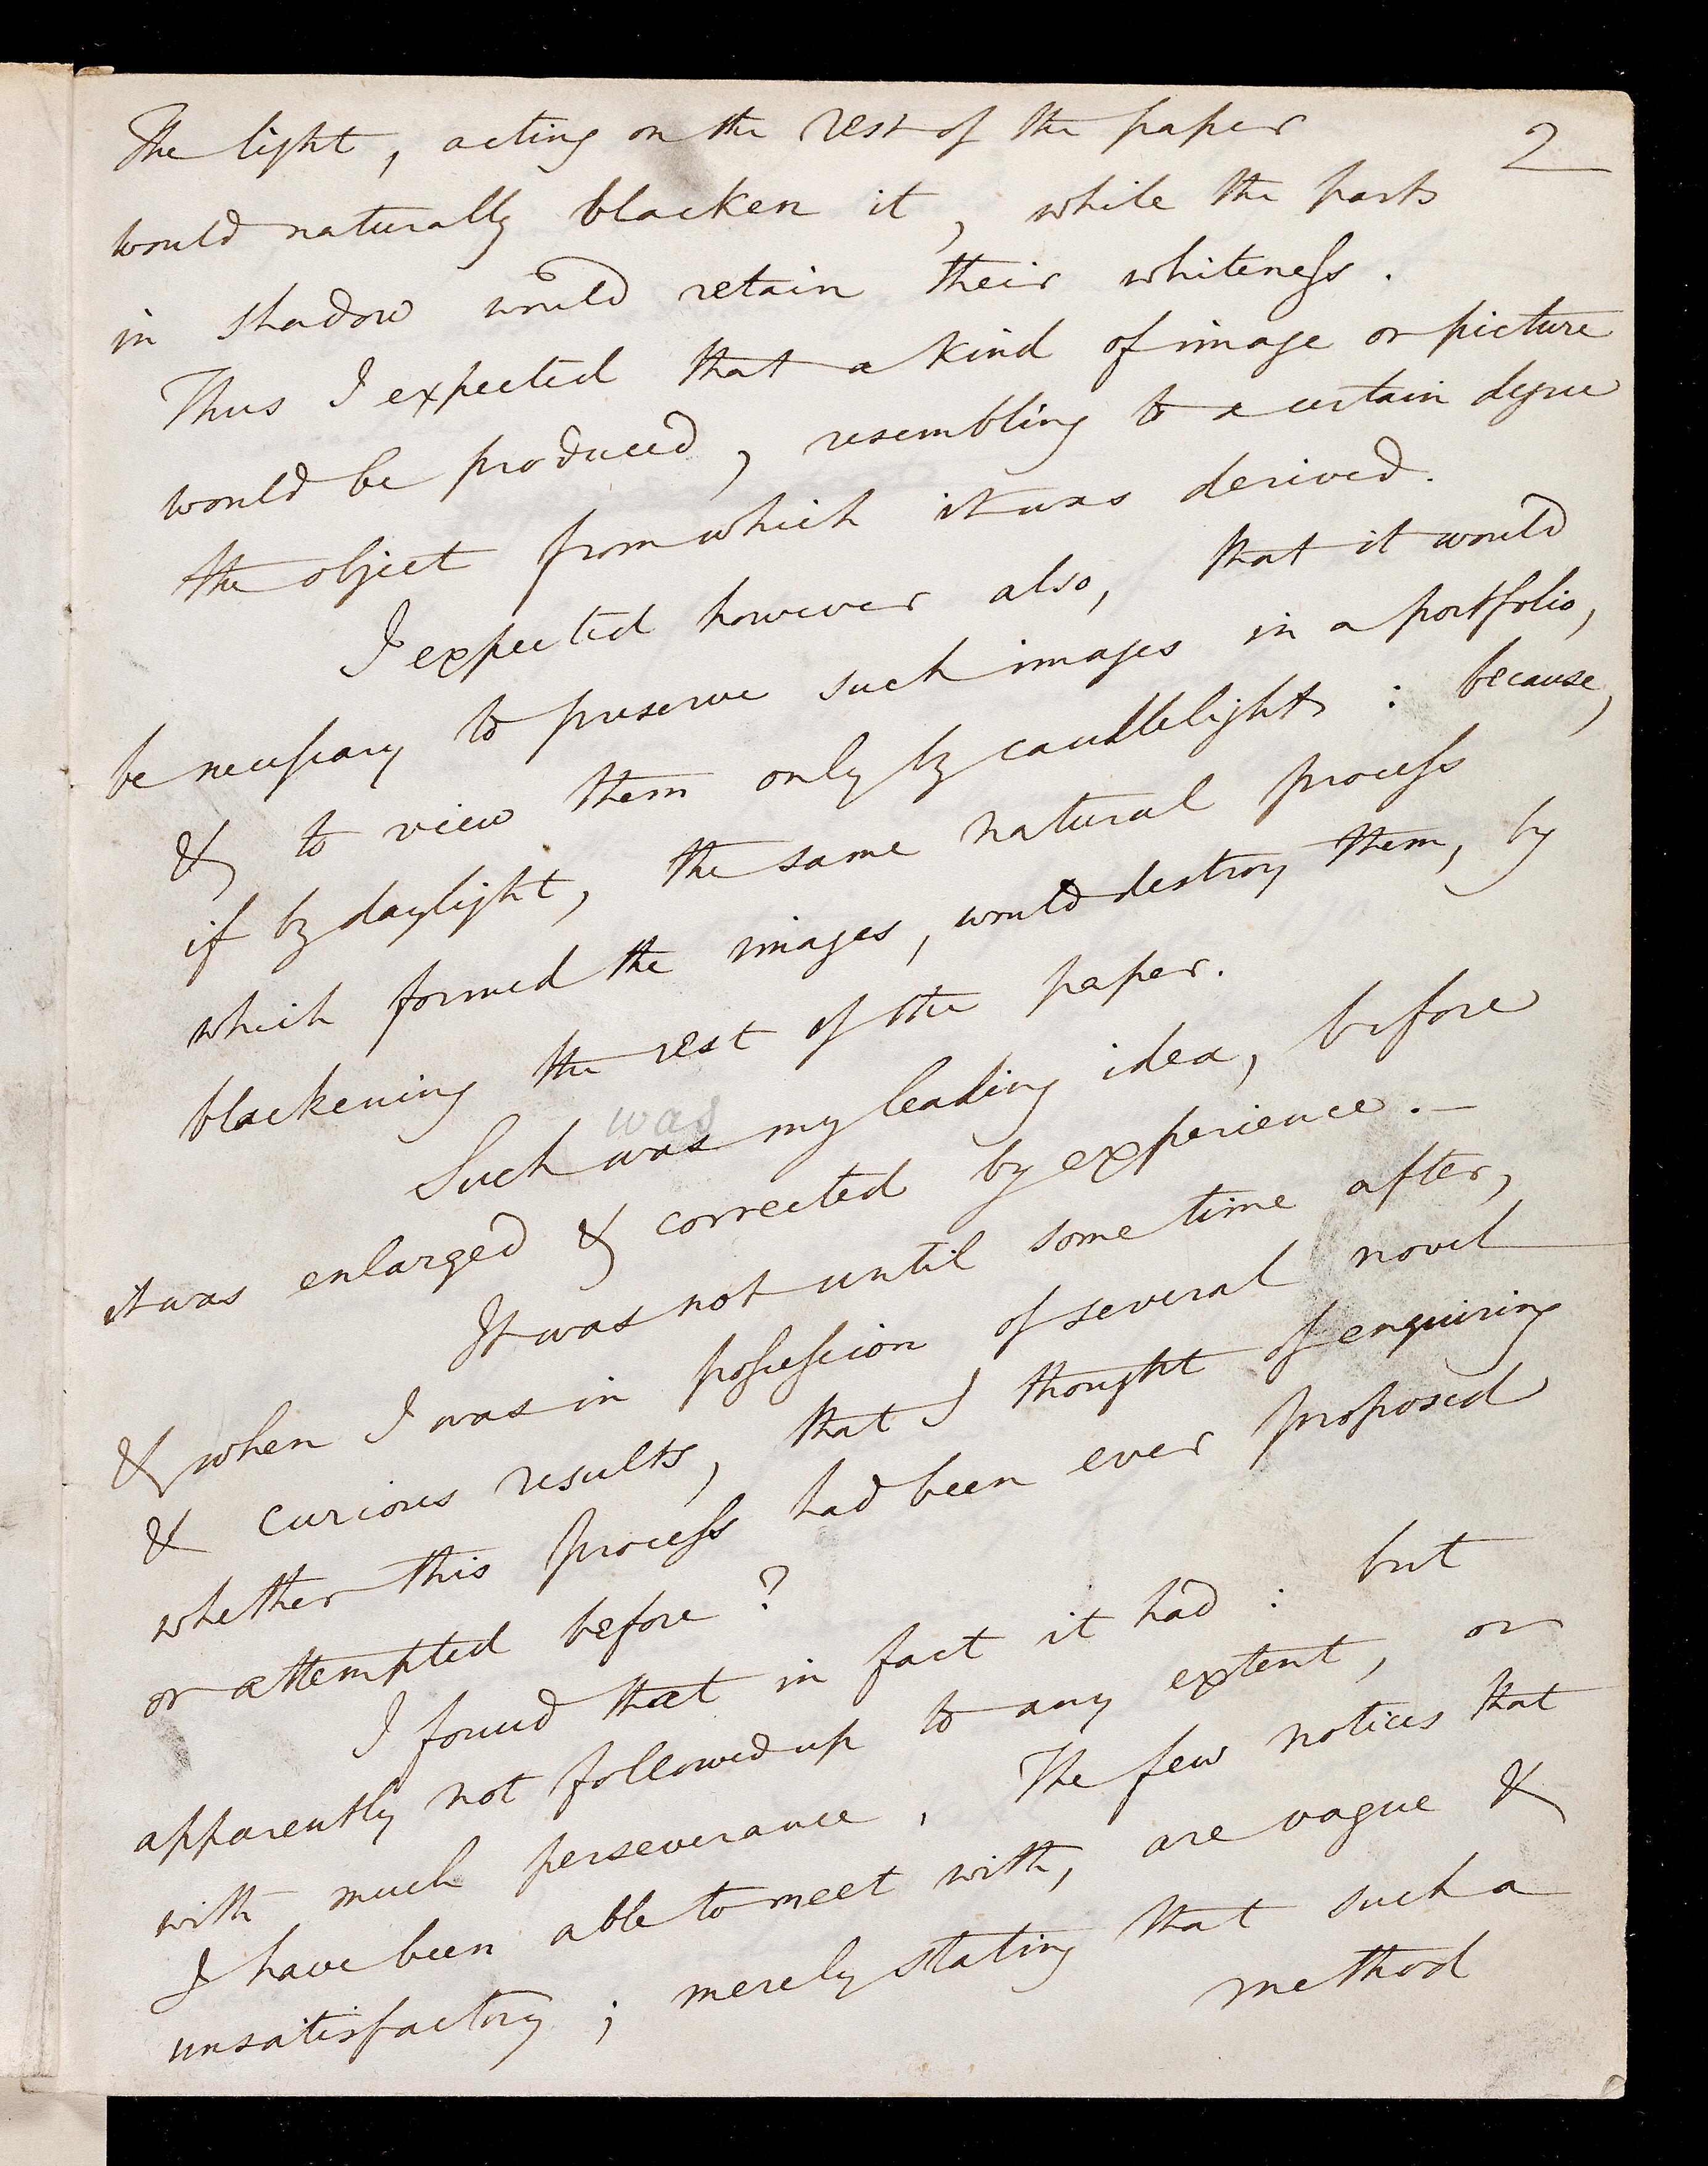 2
The light, acting on the rest of the paper
would naturally blacken it, while the parts
in shadow would retain their whiteneſs.
Thus I expected that a kind of image or picture
would be produced, resembling to a certain degree
the object from which it was derived.
I expected however also, that it would
be neceſsary to preserve such images in a portfolio,
& to view them only by candlelight: because,
if by daylight, the same natural proceſs
which formed the images, would destroy them, by
blackening the rest of the paper.
was
Such was my leading idea, before
it was enlarged & corrected by experience. —
It was not until some time after,
& when I was in poſseſsion of several novel
& curious results, that I thought of enquiring
whether this proceſs had been ever proposed
or attempted before?
I found that in fact it had: but
apparently not followed up to any extent, or
with much perseverance. The few notices that
I have been able to meet with, are vague &
unsatisfactory; merely stating that such a
method